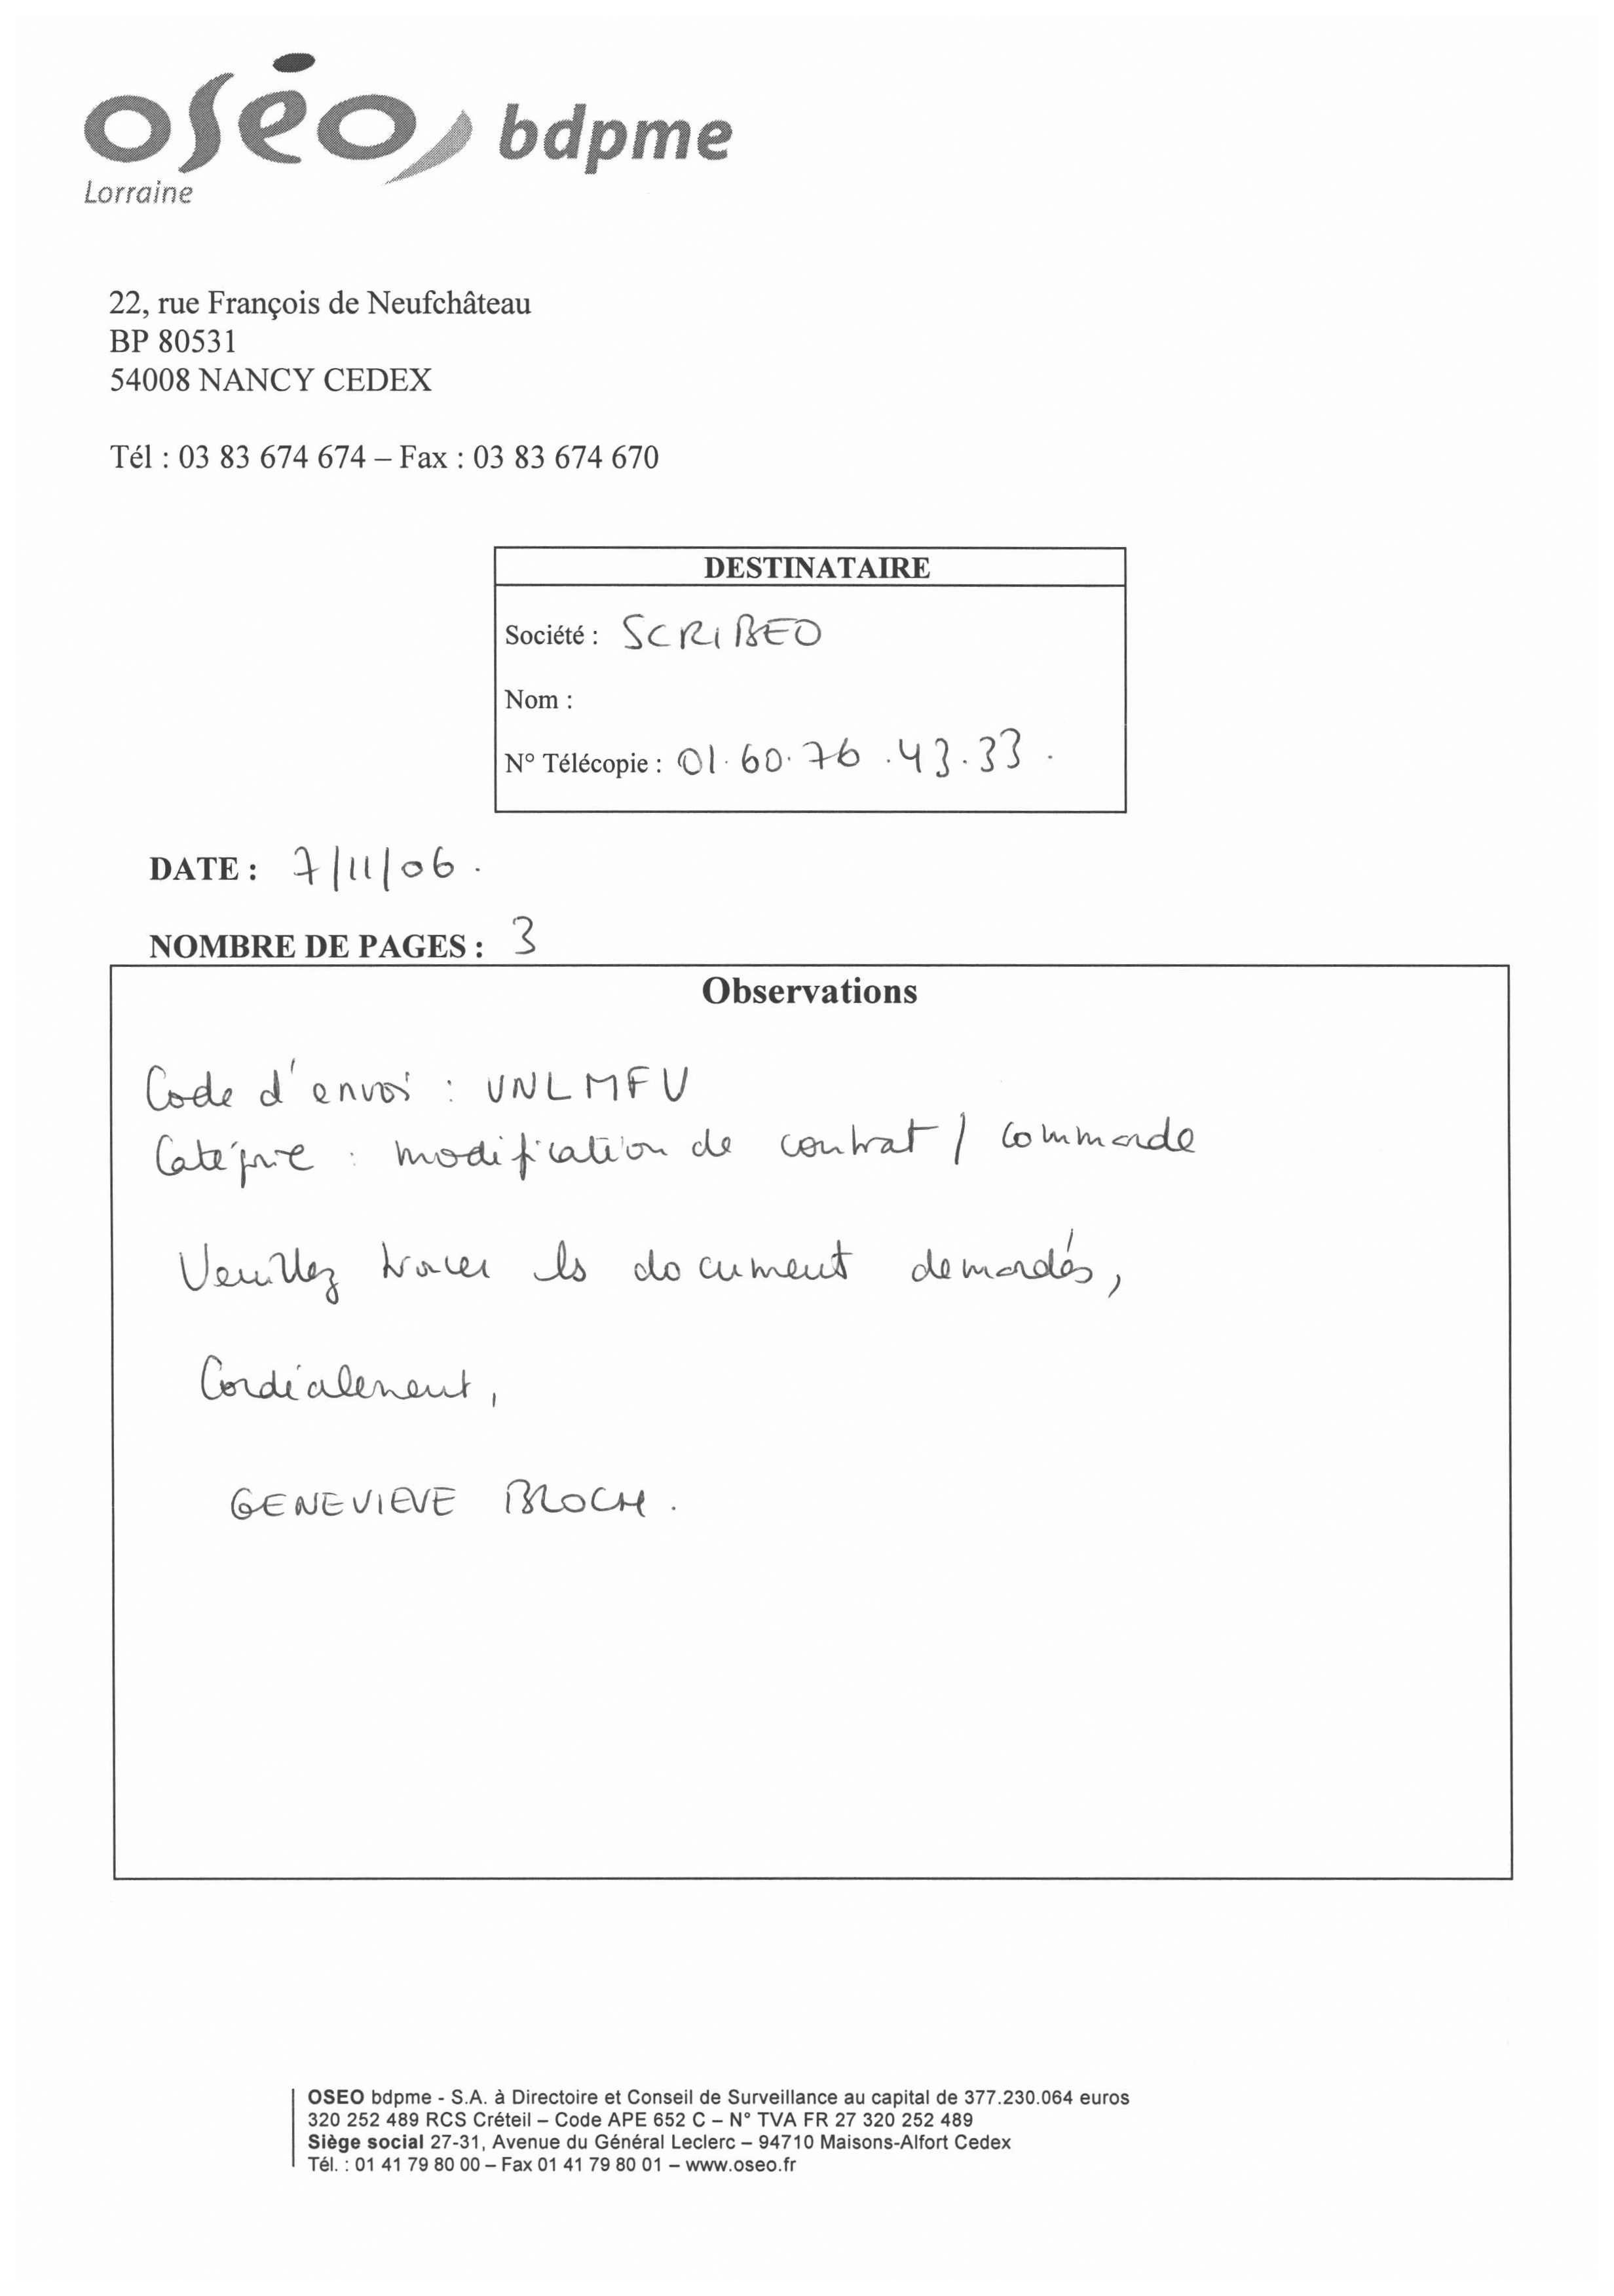 oséo bdpme
Lorraine
22, rue François de Neufchâteau
BP 80531
54008 NANCY CEDEX
Tél : 03 83 674 674 – Fax : 03 83 674 670
DESTINATAIRE
Société : SCRIBEO
Nom :
N° Télécopie : 01.60.76.43.33.
DATE : 7/11/06.
NOMBRE DE PAGES : 3
Observations
Code d'envoi : UNLMFU
Catégorie : modification de contrat / commande
Veuillez trouver les document demandés,
Cordialement,
GENEVIEVE BLOCH.
OSEO bdpme - S.A. à Directoire et Conseil de Surveillance au capital de 377.230.064 euros
320 252 489 RCS Créteil – Code APE 652 C – N° TVA FR 27 320 252 489
Siège social 27-31, Avenue du Général Leclerc – 94710 Maisons-Alfort Cedex
Tél. : 01 41 79 80 00 – Fax 01 41 79 80 01 – www.oseo.fr